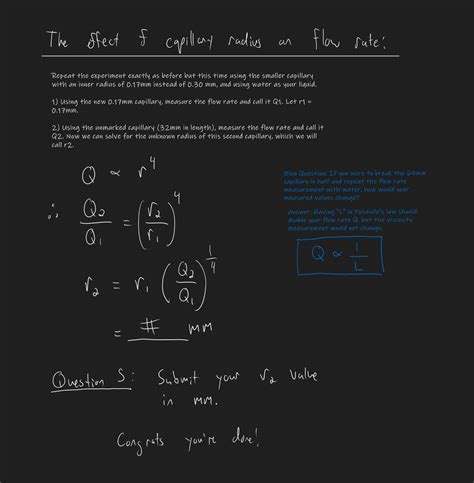 The effect of capillary radius on flow rate:
Repeat the experiment exactly as before but this time using the smaller capillary
with an inner radius of 0.17mm instead of 0.30 mm, and using water as your liquid.
1) Using the new 0.17mm capillary, measure the flow rate and call it Q1. Let r1 =
0.17mm.
2) Using the unmarked capillary (32mm in length), measure the flow rate and call it
Q2. Now we can solve for the unknown radius of this second capillary, which we will
call r2.
Q ∝ r^4
∴ Q2/Q1 = (r2/r1)^4
r2 = r1 (Q2/Q1)^1/4
= # mm
Blue Question: If you were to break the 64mm
capillary in half and repeat the flow rate
measurement with water, how would your
measured values change?
Answer: Having "L" in Poiseuille's law should
double your flow rate Q, but the viscosity
measurement would not change.
Q ∝ 1/L
Question 5: Submit your r2 value
in mm.
Congrats you're done!